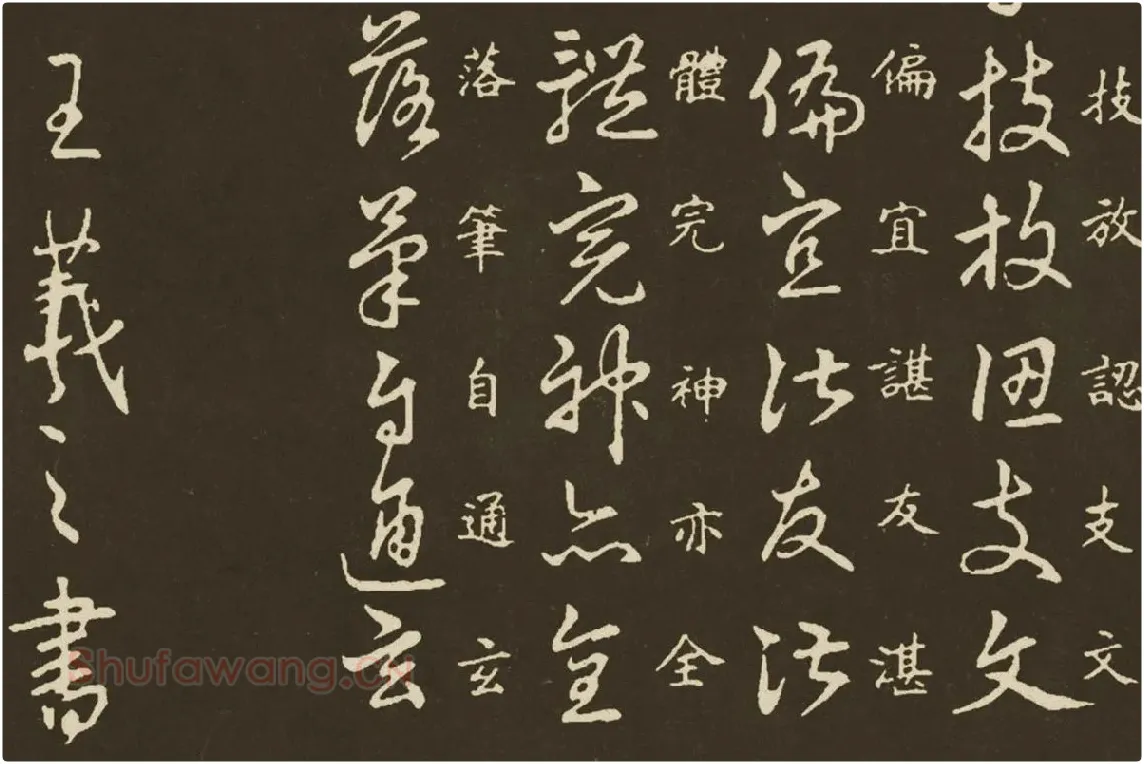 技放認支文
技放認支文
偏宜諶友湛
偏宜諶友湛
體完神亦全
體完神亦全
落筆自通玄
落筆自通玄
王羲之書
Shufawang.cn